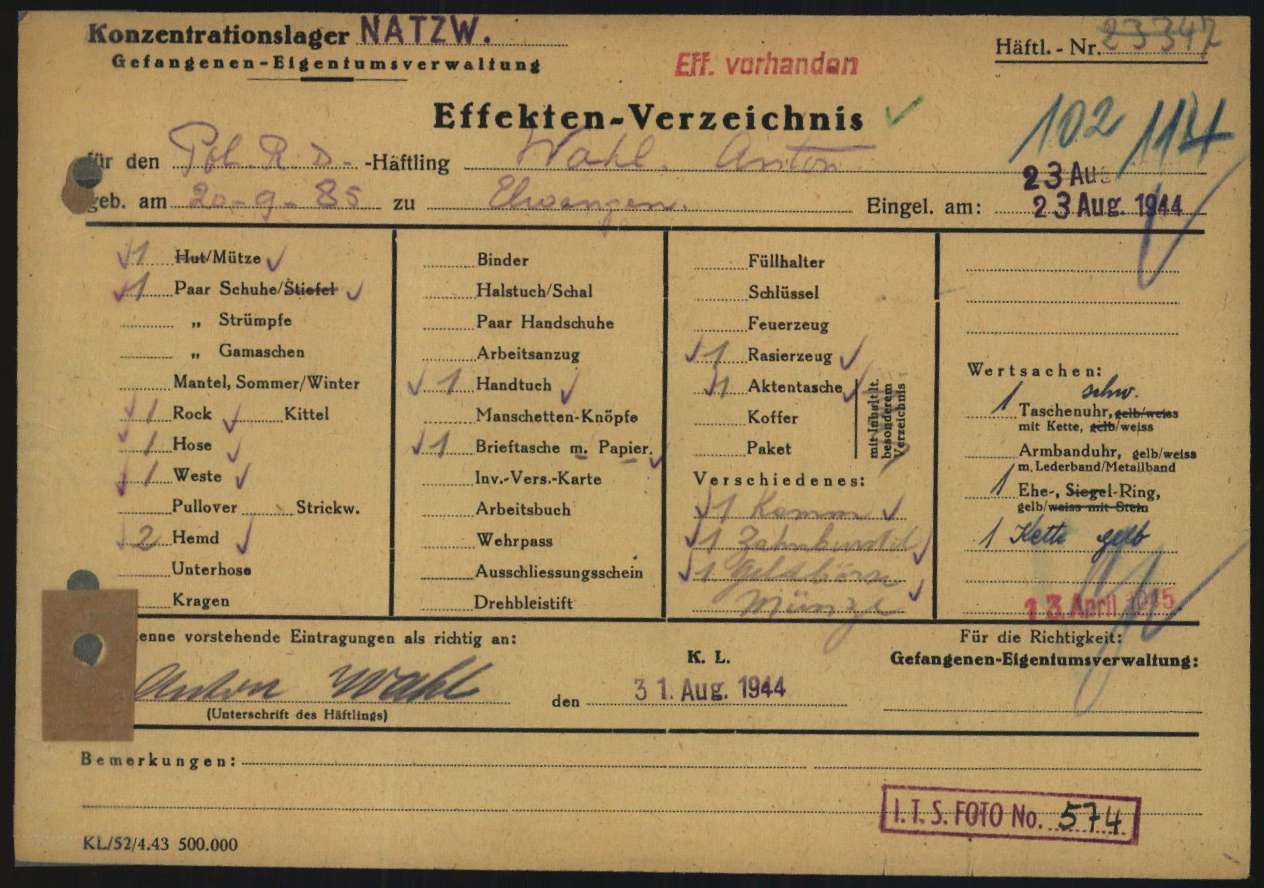 Konzentrationslager NATZW.
Gefangenen-Eigentumsverwaltung
Eff. vorhanden
Häftl.-Nr. 23347
Effekten-Verzeichnis
102 114
für den Pol. R.D. -Häftling Wahl. Anton
23 Aug
geb. am 20-9-85 zu Elwangen. Eingel. am: 23 Aug. 1944
1 Hut/Mütze
1 Paar Schuhe/Stiefel
„ Strümpfe
„ Gamaschen
Mantel, Sommer/Winter
1 Rock Kittel
1 Hose
1 Weste
Pullover Strickw.
2 Hemd
Unterhose
Kragen
Binder
Halstuch/Schal
Paar Handschuhe
Arbeitsanzug
1 Handtuch
Manschetten-Knöpfe
1 Brieftasche m. Papier.
Inv.-Vers.-Karte
Arbeitsbuch
Wehrpass
Ausschliessungsschein
Drehbleistift
Füllhalter
Schlüssel
Feuerzeug
1 Rasierzeug
1 Aktentasche
Koffer
Paket
mit Inhalt lt.
besonderem
Verzeichnis
Verschiedenes:
1 Kamm
1 Zahnbürste
1 Geldbörse
Münze
Wertsachen:
schw.
1 Taschenuhr, gelb/weiss
mit Kette, gelb/weiss
Armbanduhr, gelb/weiss
m. Lederband/Metallband
1 Ehe-, Siegel-Ring,
gelb/weiss mit Stein
1 Kette gelb
13. April 1945
enne vorstehende Eintragungen als richtig an:
Anton Wahl
(Unterschrift des Häftlings)
K. L.
den 31. Aug. 1944
Für die Richtigkeit:
Gefangenen-Eigentumsverwaltung:
Bemerkungen:
I.T.S. FOTO No. 574
KL/52/4.43 500.000